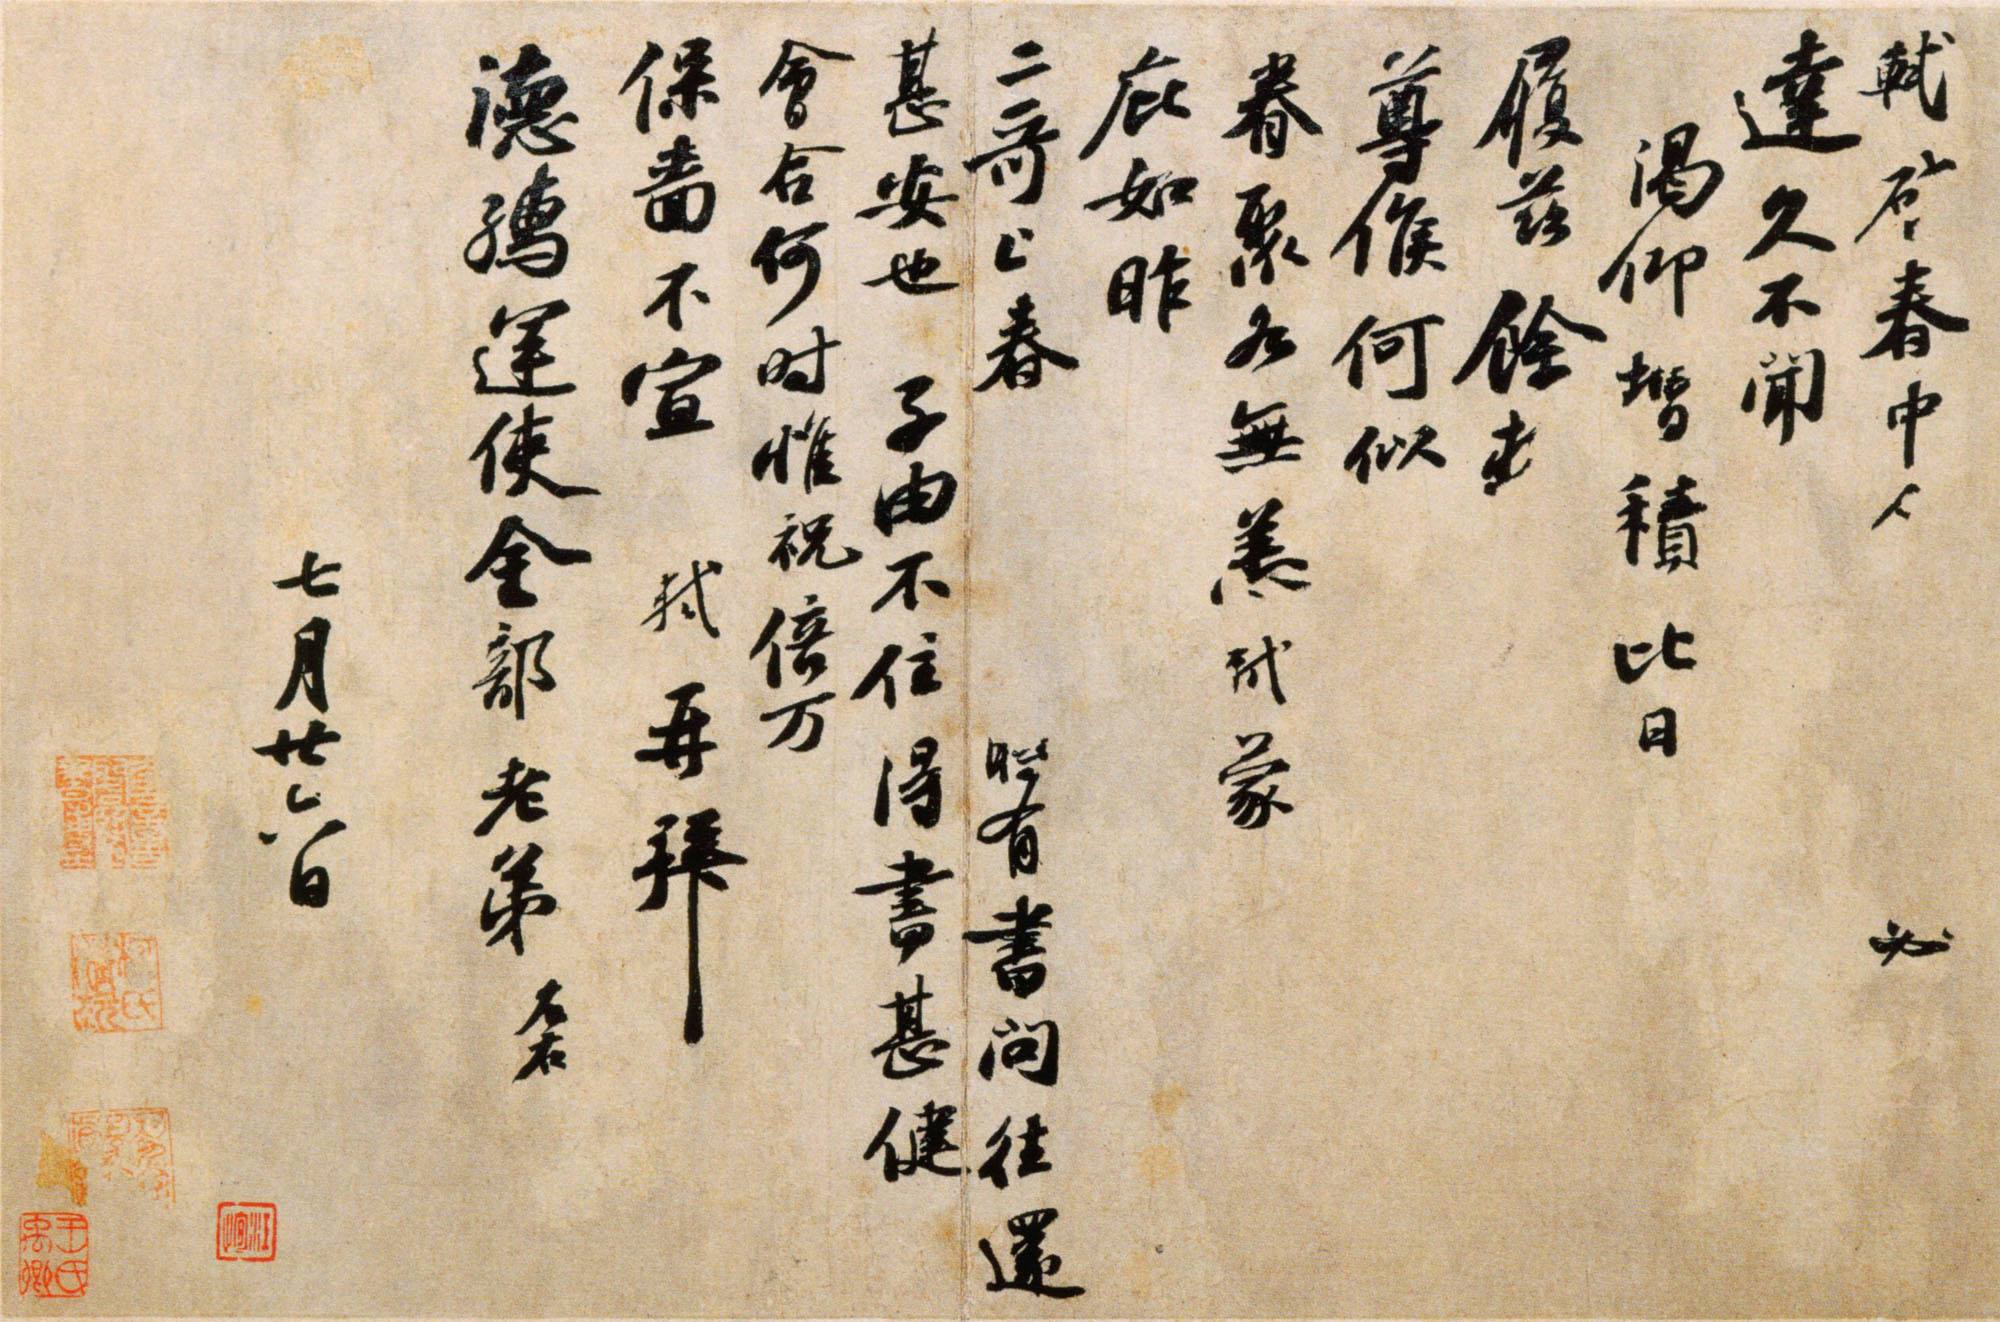 軾啓春中人必
達久不聞
渴仰增積比日
履茲餘
尊候何似
眷聚各無恙軾蒙
庇如昨
二哥上春時有書問往還
甚安也子由不住得書甚健
會合何時惟祝倍万
保嗇不宣軾再拜
德孺運使金部老弟左右
七月廿六日
王氏禹卿